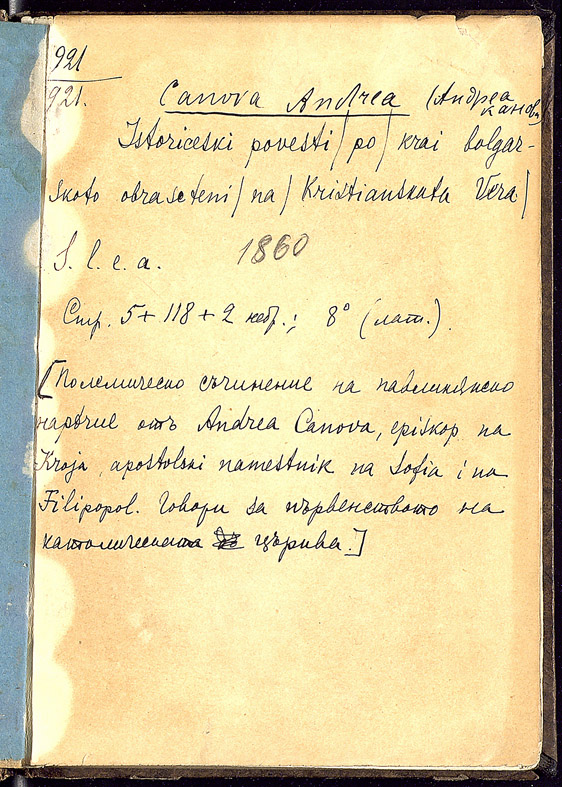 921
921.
Canova Andrea (Андреа
Канова)
Istoriceski povesti | po | krai bolgar-
skoto obrasteni | na | Kristianskata Vera |
S. l. e. a. 1860
Стр. 5 + 118 + 2 небр.; 8° (лат.).
[Полемическо съчинение на павликянско
нарѣчие отъ Andrea Canova, episkop na
Kroja, apostolski namestnik na Sofia i na
Filipopol. Говори за първенството на
католическата църква.]